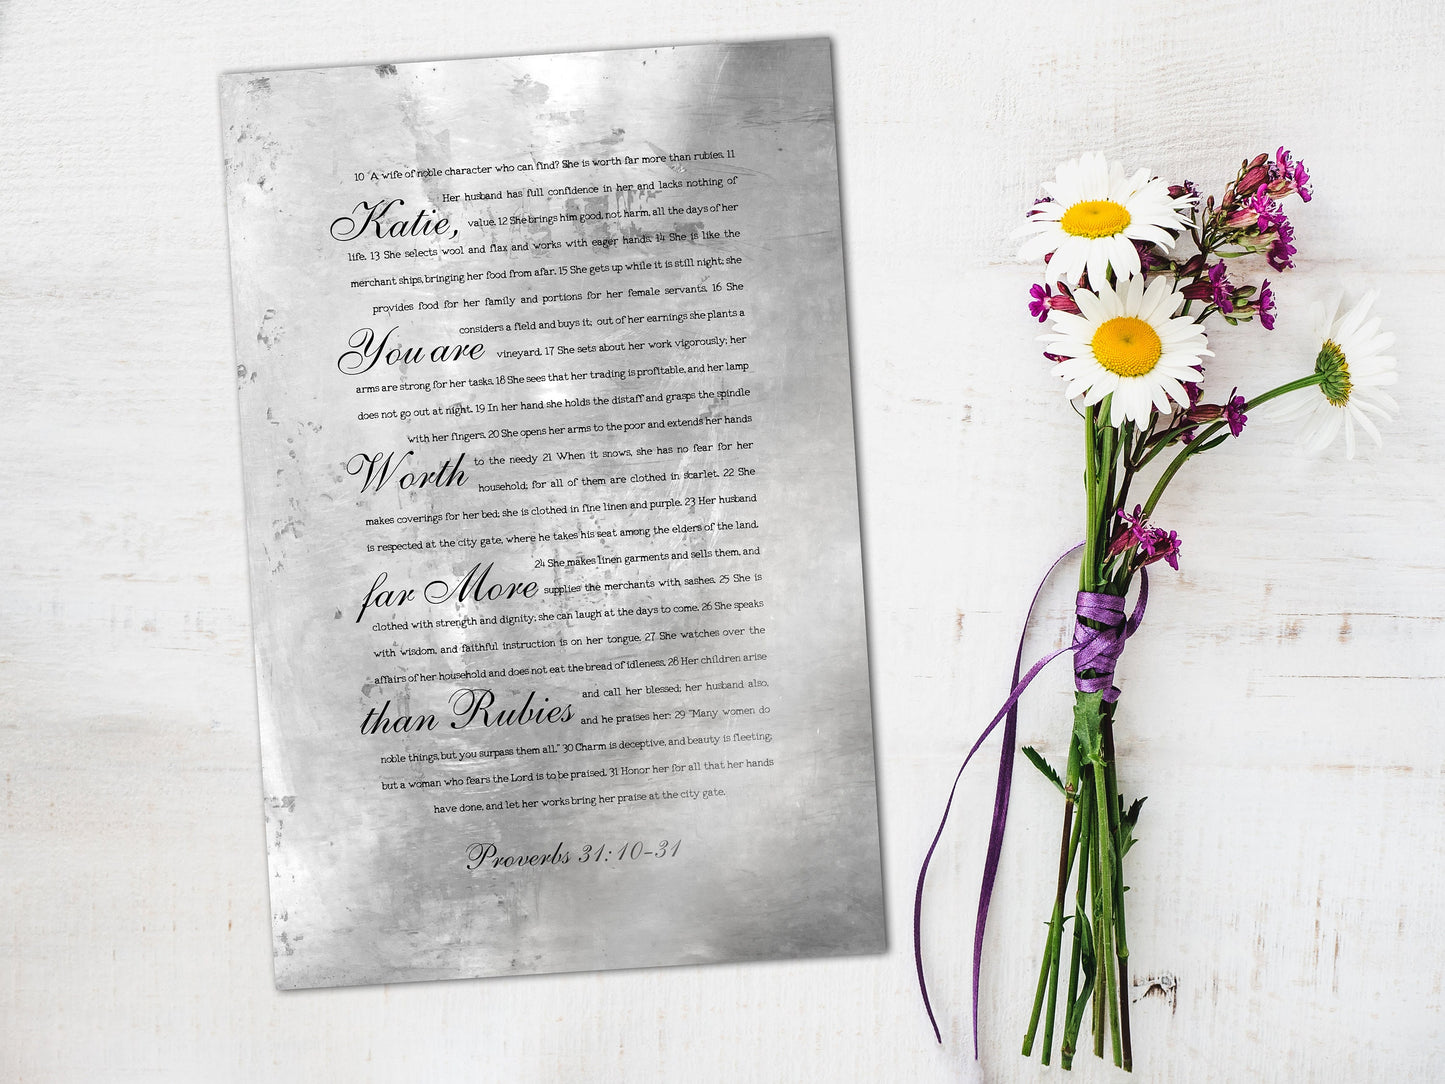 10 "A wife of noble character who can find? She is worth far more than rubies. 11
Her husband has full confidence in her and lacks nothing of
Katie,
value. 12 She brings him good, not harm, all the days of her
life. 13 She selects wool and flax and works with eager hands. 14 She is like the
merchant ships, bringing her food from afar. 15 She gets up while it is still night; she
provides food for her family and portions for her female servants. 16 She
considers a field and buys it; out of her earnings she plants a
You are
vineyard. 17 She sets about her work vigorously; her
arms are strong for her tasks. 18 She sees that her trading is profitable, and her lamp
does not go out at night. 19 In her hand she holds the distaff and grasps the spindle
with her fingers. 20 She opens her arms to the poor and extends her hands
Worth
to the needy 21 When it snows, she has no fear for her
household; for all of them are clothed in scarlet. 22 She
makes coverings for her bed; she is clothed in fine linen and purple. 23 Her husband
is respected at the city gate, where he takes his seat among the elders of the land.
24 She makes linen garments and sells them, and
far More
supplies the merchants with sashes. 25 She is
clothed with strength and dignity; she can laugh at the days to come. 26 She speaks
with wisdom, and faithful instruction is on her tongue. 27 She watches over the
affairs of her household and does not eat the bread of idleness. 28 Her children arise
and call her blessed; her husband also,
than Rubies
and he praises her: 29 "Many women do
noble things, but you surpass them all." 30 Charm is deceptive, and beauty is fleeting;
but a woman who fears the Lord is to be praised. 31 Honor her for all that her hands
have done, and let her works bring her praise at the city gate.
Proverbs 31:10-31